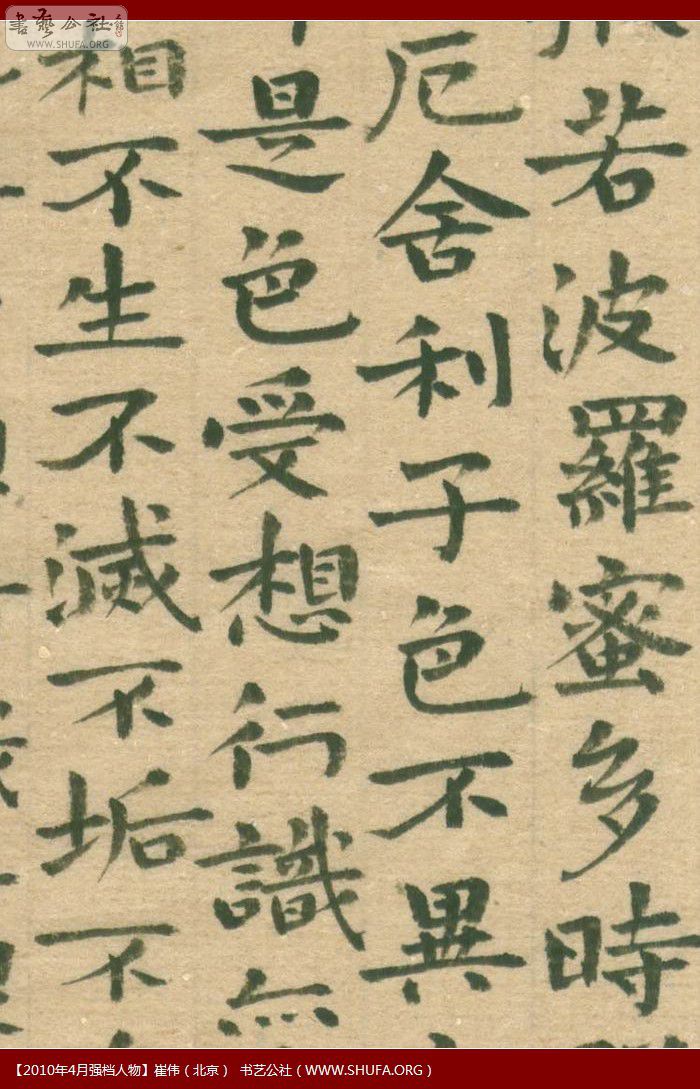 书艺公社
WWW.SHUFA.ORG
般若波羅蜜多時
厄舍利子色不異
是色受想行識
相不生不滅不垢不
【2010年4月强档人物】崔伟（北京） 书艺公社（WWW.SHUFA.ORG）